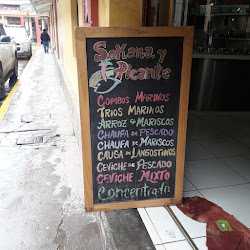 Sabana y
Picante
Combos Marinos
Trios Marinos
Arroz q Mariscos
Chaufa de Pescado
Chaufa de Mariscos
Causa de Langostinos
Ceviche de Pescado
Ceviche Mixto
Concentrado